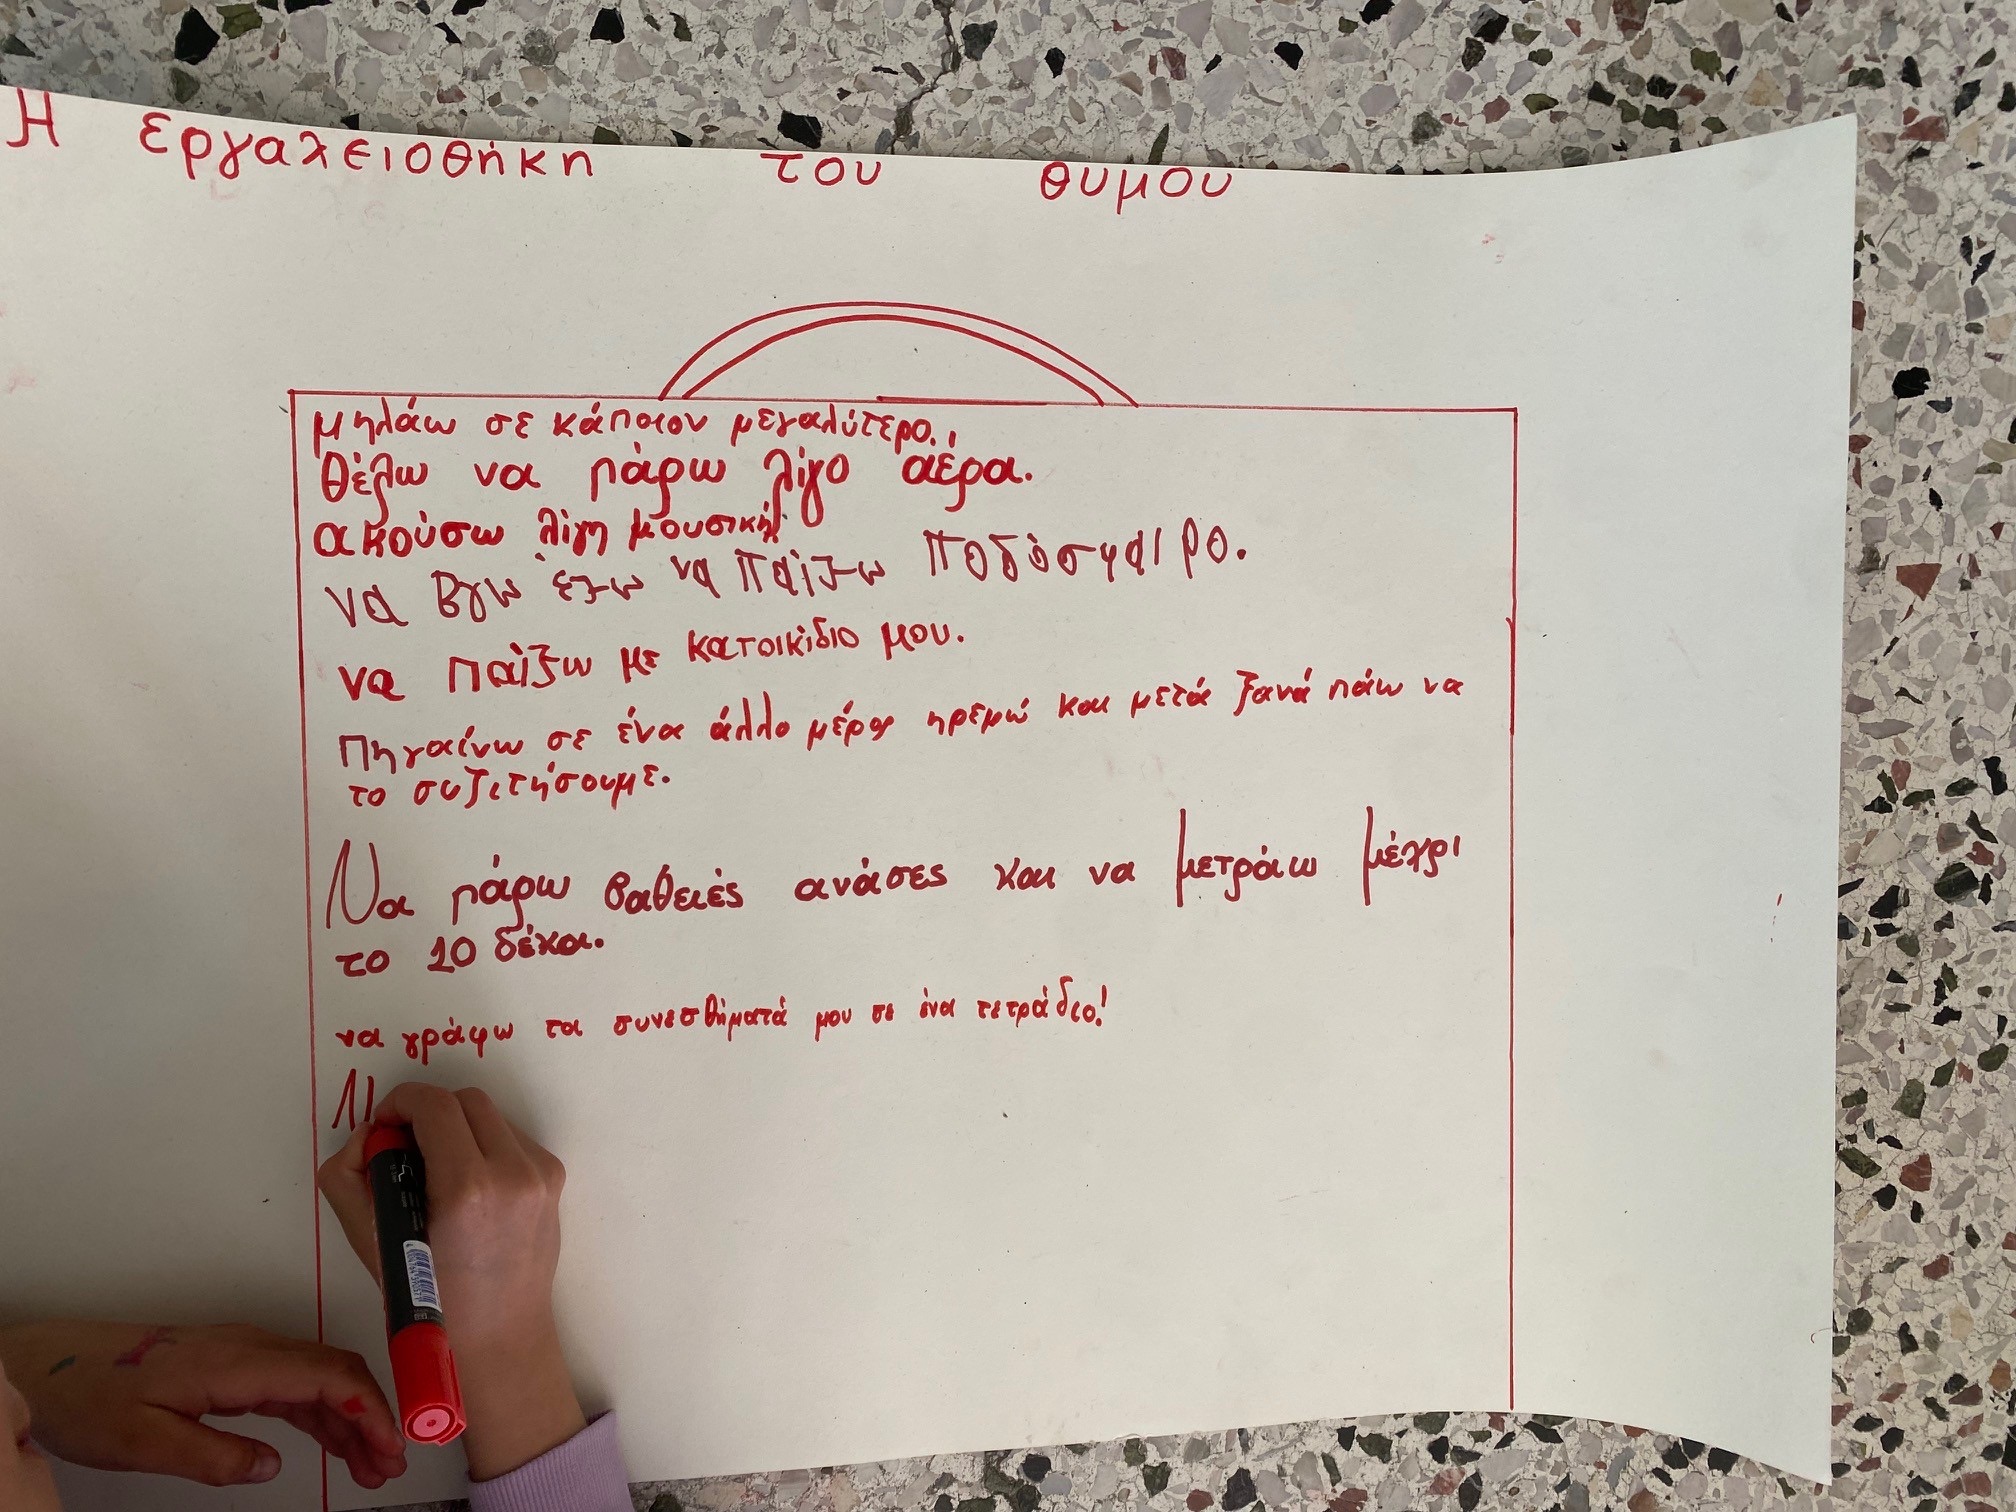 Η εργαλειοθήκη του θυμου
μηλάω σε κάποιον μεγαλύτερο.
θέλω να πάρω λίγο αέρα.
ακούσω λίγη μουσική
να βγω έξω να παίξω ποδόσφαιρο.
να παίξω με κατοικίδιο μου.
Πηγαίνω σε ένα άλλο μέρος ηρεμώ και μετά ξανά πάω να
το συζιτήσουμε.
Να πάρω βαθειές ανάσες και να μετράω μέχρι
το 10 δέκα.
να γράψω τα συνεσθήματά μου σε ένα τετράδιο!